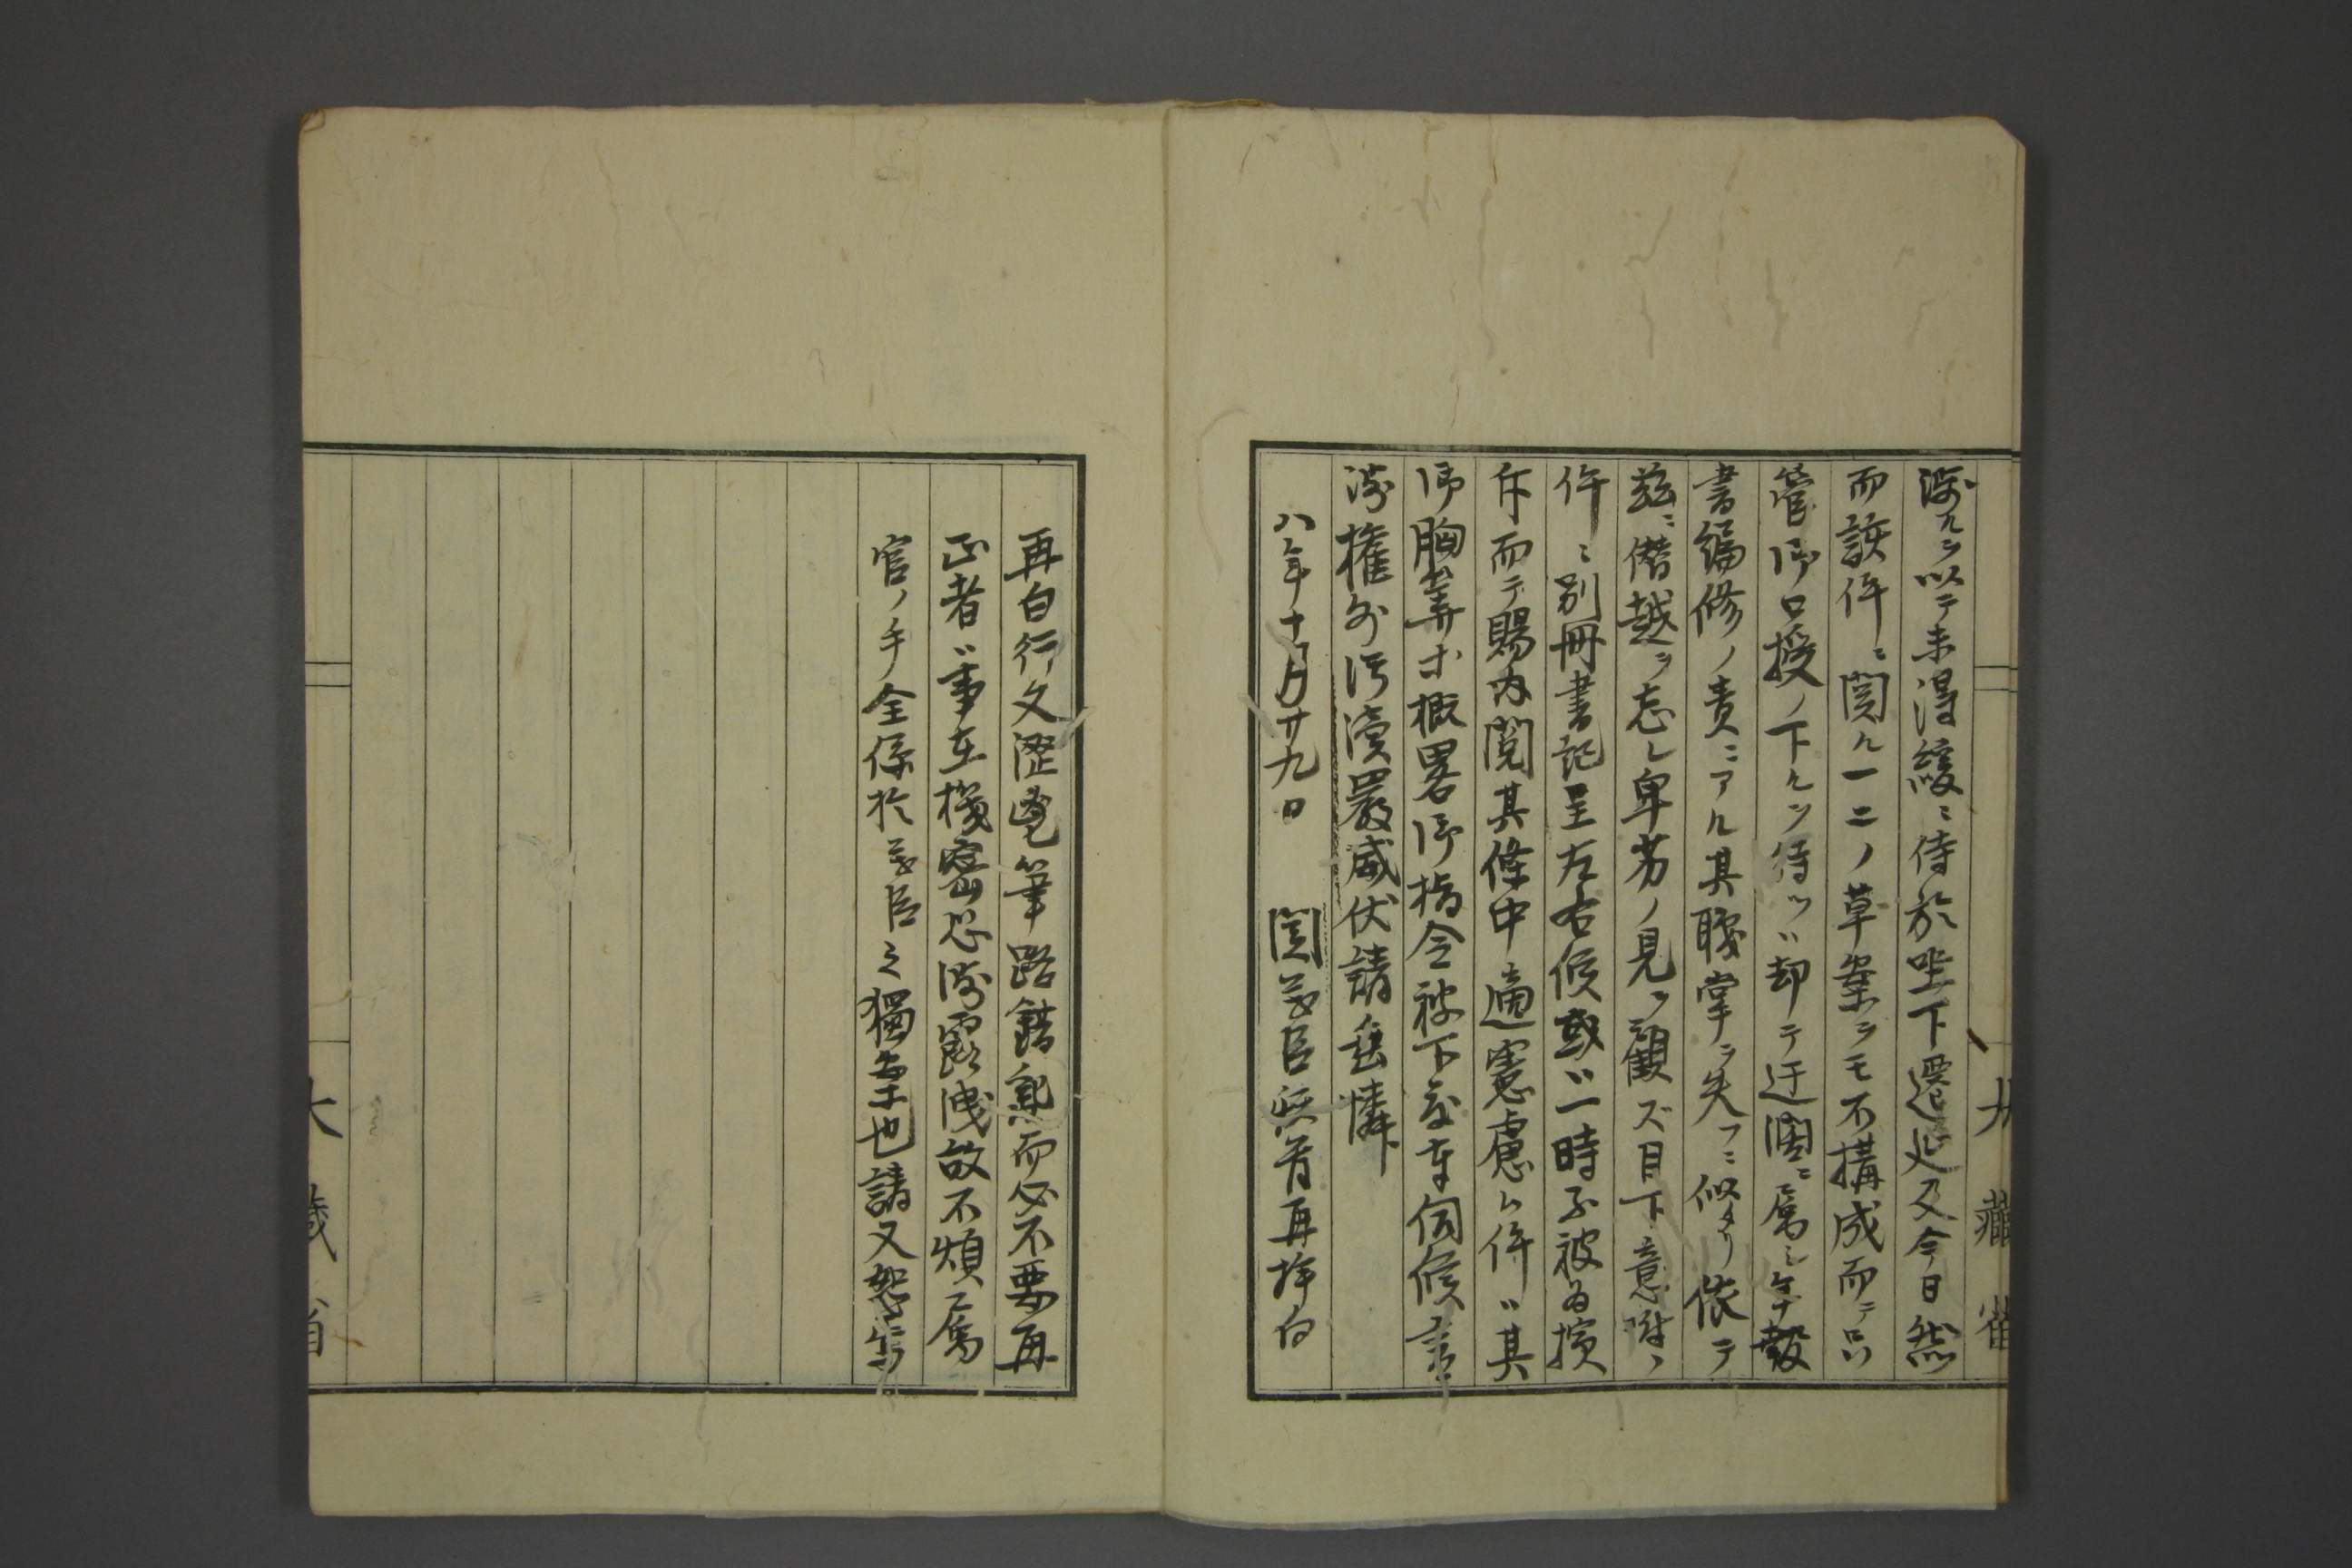 渉ルヲ以テ未得緩ニ侍於坐下遷延又今日然
而該件ニ関ル一二ノ草案ヲモ不構成而テ只
管御口授ノ下ルヲ待ツハ却テ迂濶ニ属シ
書編修ノ責ニアル其職掌ヲ失フニ似タリ依テ
茲ニ僭越ヲ忘レ卑劣ノ見ヲ観ズ目下意附ノ
件ニ別冊書記呈左右候或ハ一時不被為擯
斥而テ賜内閲其條中適憲慮ル件ハ其
御胸算ホ概畧御指令被下度奉伺候言
渉権外汚瀆嚴威伏請垂憐
八年十月廿九日 関義臣 再拝白
再白行文澀筆路錯乱而必不要再
正者ハ事在機密恐渉露洩故不煩属
官ノ手全係於義臣之獨案也請又恕
大藏省
大藏省